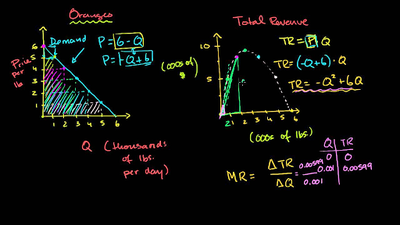 Oranges
Price per lb
6
5
4
3
2
1
Demand
P = 6 - Q
P = -Q + 6
1 2 3 4 5 6
Q (thousands of lbs. per day)
Total Revenue
(000s of $
10
5
1 2 3 4 5 6
(000s of lbs)
TR = P · Q
TR = (-Q + 6) · Q
TR = -Q² + 6Q
MR = ΔTR / ΔQ = 0.00599 / 0.001
Q TR
0 0
0.001 0.00599